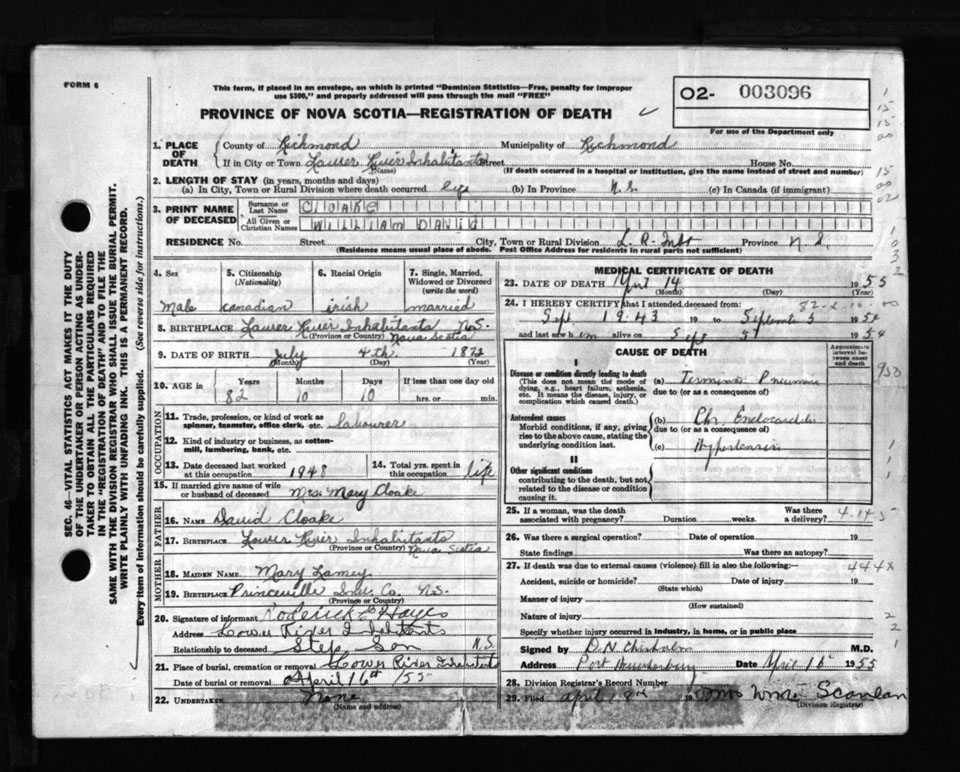 FORM 6
This form, if placed in an envelope, on which is printed "Dominion Statistics—Free, penalty for improper
use $300," and properly addressed will pass through the mail "FREE"
PROVINCE OF NOVA SCOTIA—REGISTRATION OF DEATH
O2- 003096
For use of the Department only
SEC. 46—VITAL STATISTICS ACT MAKES IT THE DUTY
OF THE UNDERTAKER OR PERSON ACTING AS UNDER-
TAKER TO OBTAIN ALL THE PARTICULARS REQUIRED
IN THE "REGISTRATION OF DEATH" AND TO FILE THE
SAME WITH THE DIVISION REGISTRAR WHO SHALL ISSUE THE BURIAL PERMIT.
WRITE PLAINLY WITH UNFADING INK. THIS IS A PERMANENT RECORD.
Every item of information should be carefully supplied. (See reverse side for instructions.)
1. PLACE OF DEATH County of Richmond Municipality of Richmond
If in City or Town Lower River Inhabitants Street House No.
(Name) (If death occurred in a hospital or institution, give the name instead of street and number)
2. LENGTH OF STAY (in years, months and days)
(a) In City, Town or Rural Division where death occurred (b) In Province N.S. (c) In Canada (if immigrant)
3. PRINT NAME OF DECEASED Surname or Last Name CLOAKE
All Given or Christian Names WILLIAM DAVID
RESIDENCE No. Street City, Town or Rural Division L. R. Inbt Province N.S.
(Residence means usual place of abode. Post Office Address for residents in rural parts not sufficient)
4. Sex 5. Citizenship (Nationality) 6. Racial Origin 7. Single, Married, Widowed or Divorced (write the word)
Male Canadian irish married
8. BIRTHPLACE Lower River Inhabitants N.S.
(Province or Country) Nova Scotia
9. DATE OF BIRTH July 4th. 1872
(Month) (Day) (Year)
10. AGE in Years Months Days If less than one day old
82 10 10 hrs. or min.
OCCUPATION
11. Trade, profession, or kind of work as
spinner, teamster, office clerk, etc. labourer
12. Kind of industry or business, as cotton-
mill, lumbering, bank, etc.
13. Date deceased last worked at this occupation 1948 14. Total yrs. spent in this occupation life
15. If married give name of wife
or husband of deceased Mrs. Mary Cloake
FATHER
16. NAME David Cloake
17. BIRTHPLACE Lower River Inhabitants
(Province or Country) Nova Scotia
MOTHER
18. MAIDEN NAME Mary Lamey
19. BIRTHPLACE Princeville Inv. Co. N.S.
(Province or Country)
20. Signature of informant Roderick Hayes
Address Lower River Inhabitants
Relationship to deceased Step Son N.S.
21. Place of burial, cremation or removal Lower River Inhabitants
Date of burial or removal April 16th /55
22. UNDERTAKER None
(Name and address)
MEDICAL CERTIFICATE OF DEATH
23. DATE OF DEATH April 14 1955
(Month) (Day) (Year)
24. I HEREBY CERTIFY that I attended deceased from:
Sept 1943 19 to September 5 1954
and last saw him alive on Sept 5 1954
CAUSE OF DEATH
Approximate interval between onset and death
I
Disease or condition directly leading to death
(This does not mean the mode of
dying, e.g., heart failure, asthenia,
etc. It means the disease, injury, or
complication which caused death.)
(a) Terminal Pneumonia
due to (or as a consequence of)
Antecedent causes
Morbid conditions, if any, giving
rise to the above cause, stating the
underlying condition last.
(b) Chr. Endocarditis
due to (or as a consequence of)
(c) Hypertension
II
Other significant conditions
contributing to the death, but not
related to the disease or condition
causing it.
25. If a woman, was the death associated with pregnancy? Duration weeks. Was there a delivery?
26. Was there a surgical operation? Date of operation 19
State findings Was there an autopsy?
27. If death was due to external causes (violence) fill in also the following:— 444x
Accident, suicide or homicide? Date of injury 19
(State which)
Manner of injury
(How sustained)
Nature of injury
Specify whether injury occurred in industry, in home, or in public place
Signed by D. N. Chisholm M.D.
Address Port Hawkesbury Date April 16 1955
28. Division Registrar's Record Number
29. Filed April 18th 19 Mrs Wm Scanlan
(Division Registrar)